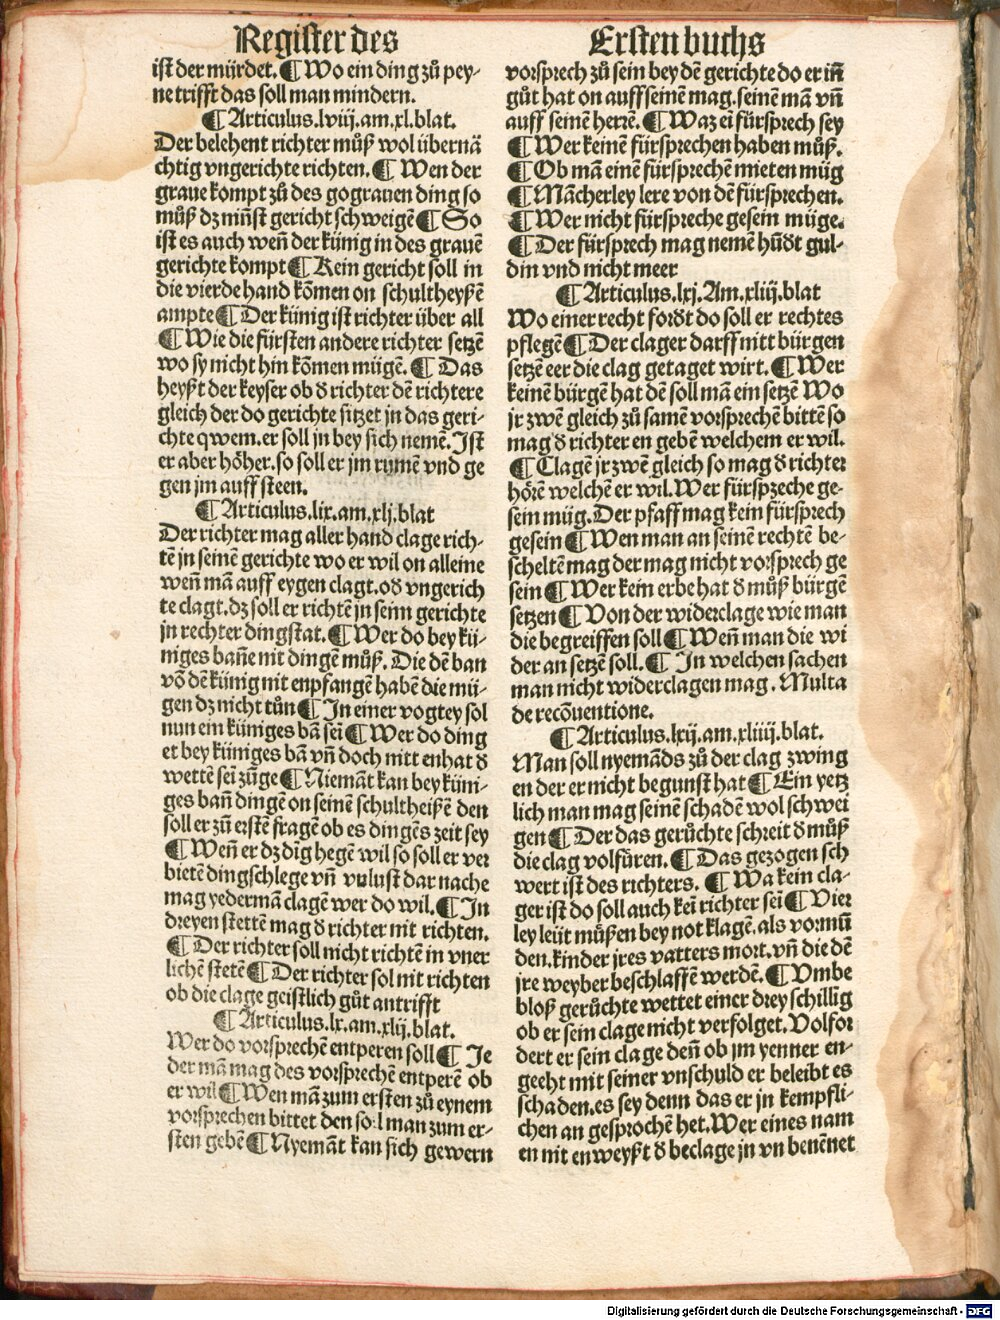 Register des
ist der mürdet. ¶ Wo ein ding zů pey-
ne trifft das soll man mindern.
¶ Articulus.lviij.am.xl.blat.
Der belehent richter můß wol übernä
chtig vngerichte richten. ¶ Wen der
graue kompt zů des gograuen ding so
můß dz minst gericht schweigē ¶ So
ist es auch weñ der künig in des grauē
gerichte kompt ¶ Kein gericht soll in
die vierde hand kōmen on schultheyßē
ampte ¶ Der künig ist richter über all
¶ Wie die fürsten andere richter setzē
wo sy nicht hin kōmen mügē. ¶ Das
heyßt der keyser ob d̕ richter dē richtere
gleich der do gerichte sitzet jn das geri-
chte qwem. er soll jn bey sich nemē. Ist
er aber höher. so soll er jm rumē vnd ge
gen jm auff steen.
¶ Articulus.lix.am.xlj.blat
Der richter mag aller hand clage rich-
tē jn seinē gerichte wo er wil on alleine
weñ mā auff eygen clagt. od̕ vngerich
te clagt. dz soll er richtē jn seinn gerichte
jn rechter dingstat. ¶ Wer do bey kü-
niges bañe nit dingē můß. Die dē ban
vō dē künig nit enpfangē habē die mü-
gen dz nicht tůn ¶ In einer vogtey sol
nun ein küniges bā sei ¶ Wer do ding
et bey küniges bā vñ doch nitt enhat d̕
wettē sei zūge ¶ Niemāt kan bey küni-
ges bañ dingē on seinē schultheißē den
soll er zū erstē fragē ob es dingēs zeit sey
¶ Weñ er dz dīg hegē wil so soll er ver
bietē dingschlege vñ vnlust dar nache
mag yedermā clagē wer do wil. ¶ In
dreyen stettē mag d̕ richter nit richten.
¶ Der richter soll nicht richtē in vner
lichē stetē ¶ Der richter sol nit richten
ob die clage geistlich gůt antrifft
¶ Articulus.lx.am.xlij.blat.
Wer do vorsprechē entperen soll ¶ Je
der mā mag des vorsprechē entperē ob
er wil ¶ Wen mā zum ersten zů eynem
vorsprechen bittet den sol man zum er-
sten gebē ¶ Nyemāt kan sich gewern
Ersten buchs
vorsprech zů sein bey dē gerichte do er iñ
gůt hat on auff seinē mag. seinē mā vñ
auff seinē herrē. ¶ Waz ei fürsprech sey
¶ Wer keinē fürsprechen haben můß.
¶ Ob mā einē fürsprechē mieten müg
¶ Mācherley lere von dē fürsprechen.
¶ Wer nicht fürspreche gesein müge.
¶ Der fürsprech mag nemē hūd̕t gul-
din vnd nicht meer
¶ Articulus.lxj.Am.xliij.blat
Wo einer recht ford̕t do soll er rechtes
pflegē ¶ Der clager darff nitt bürgen
setzē eer die clag getaget wirt. ¶ Wer
keinē bürgē hat dē soll mā ein setzē Wo
jr zwē gleich zů samē vorsprechē bittē so
mag d̕ richter en gebē welchem er wil.
¶ Clagē jr zwē gleich so mag d̕ richter
hörē welchē er wil. Wer fürspreche ge-
sein müg. Der pfaff mag kein fürsprech
gesein ¶ Wen man an seinē rechtē be-
scheltē mag der mag nicht vorsprech ge
sein ¶ Wer kein erbe hat d̕ můß bürgē
setzen ¶ Von der widerclage wie man
die begreiffen soll ¶ Weñ man die wi
der an setzē soll. ¶ In welchen sachen
man nicht widerclagen mag. Multa
de recōuentione.
¶ Articulus.lxij.am.xliiij.blat.
Man soll nyemāds zů der clag zwing
en der er nicht begunst hat ¶ Ein yetz
lich man mag seinē schadē wol schwei
gen ¶ Der das gerüchte schreit d̕ můß
die clag volfüren. ¶ Das gezogen sch
wert ist des richters. ¶ Wa kein cla-
ger ist do soll auch kei richter sei ¶ Vier
ley leüt můßen bey not klagē. als vormū
den. kinder jres vatters mort. vñ die dē
jre weyber beschlaffē werdē. ¶ Vmbe
bloß gerüchte wettet einer drey schillig
ob er sein clage nicht verfolget. Volfor
dert er sein clage deñ ob jm yenner en-
geeht mit seiner vnschuld er beleibt es
schaden. es sey denn das er jn kempfli-
chen an gesprochē het. Wer eines nam
en nit en weyßt d̕ beclage jn vn benēnet
Digitalisierung gefördert durch die Deutsche Forschungsgemeinschaft - DFG